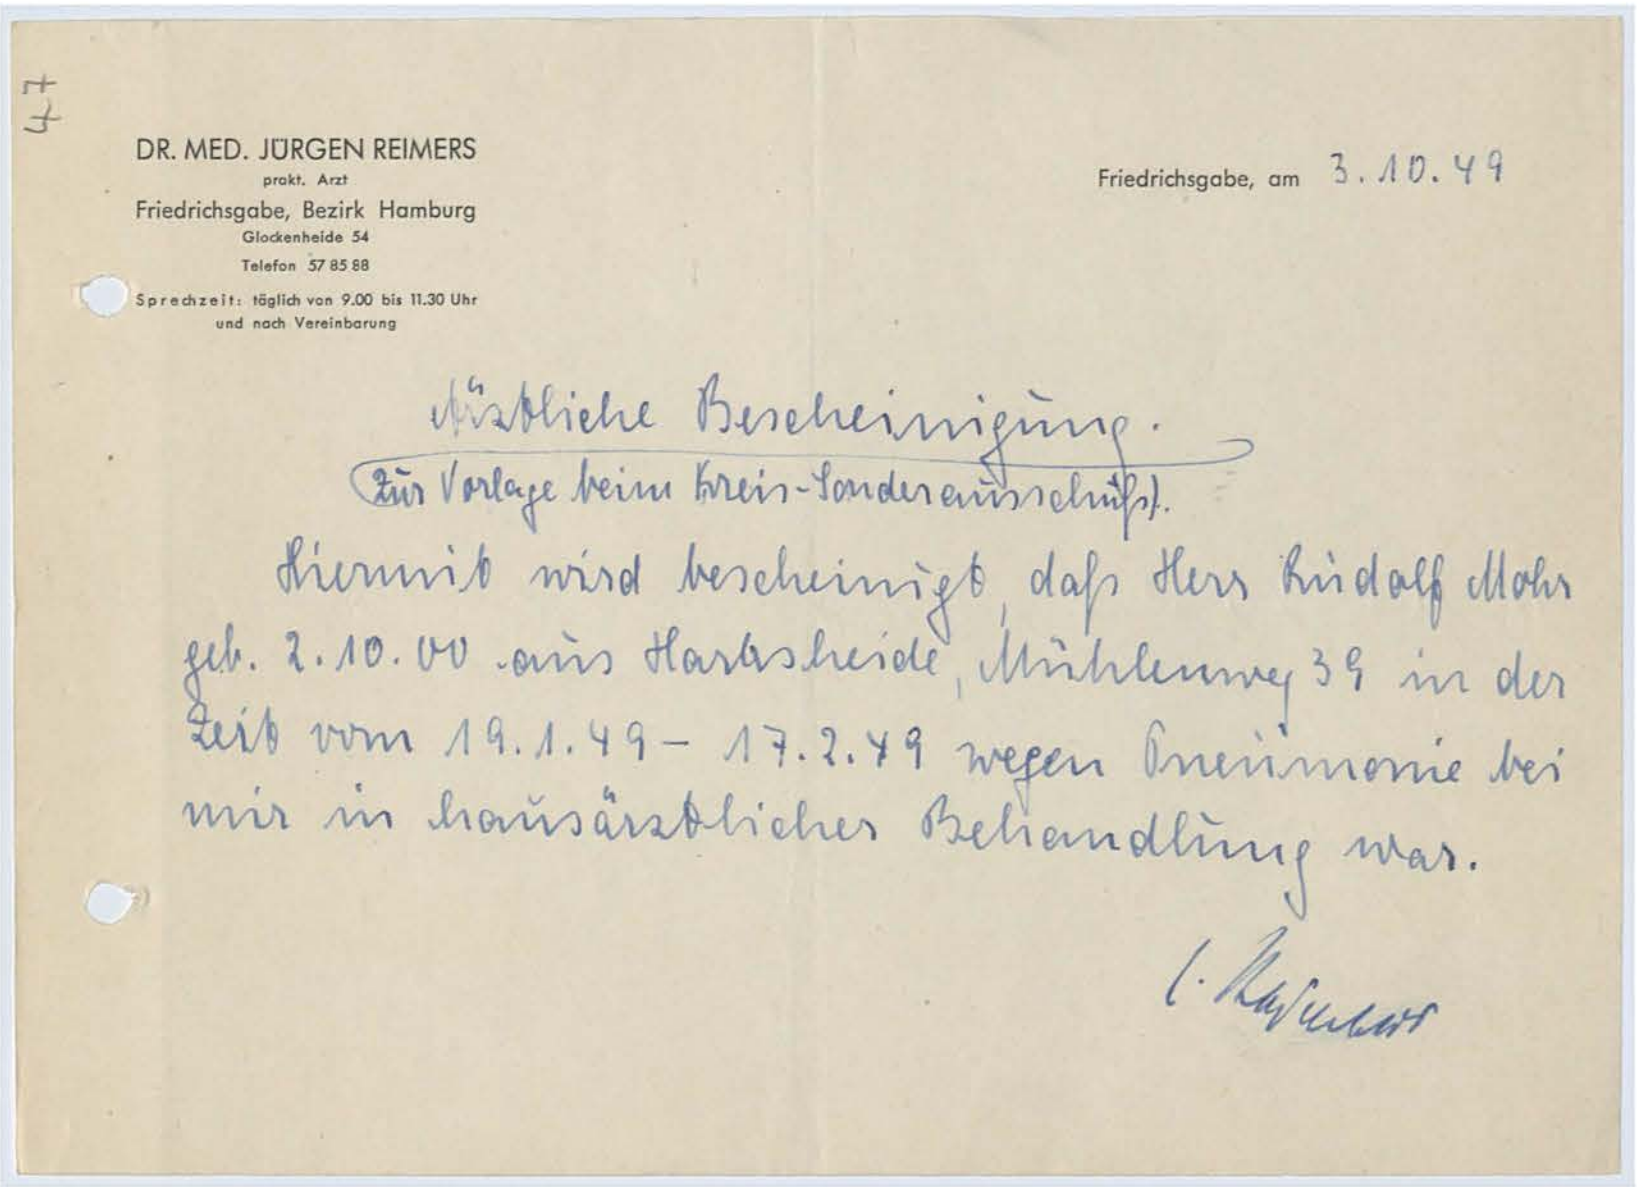 47
DR. MED. JÜRGEN REIMERS
prakt. Arzt
Friedrichsgabe, Bezirk Hamburg
Glockenheide 54
Telefon 57 85 88
Sprechzeit: täglich von 9.00 bis 11.30 Uhr
und nach Vereinbarung
Friedrichsgabe, am 3.10.49
Ärztliche Bescheinigung.
(Zur Vorlage beim Kreis-Sonderausschuß).
Hiermit wird bescheinigt, daß Herr Rudolf Mohr
geb. 2.10.00 aus Harksheide, Mühlenweg 39 in der
Zeit vom 19.1.49 - 17.2.49 wegen Pneumonie bei
mir in hausärztlicher Behandlung war.